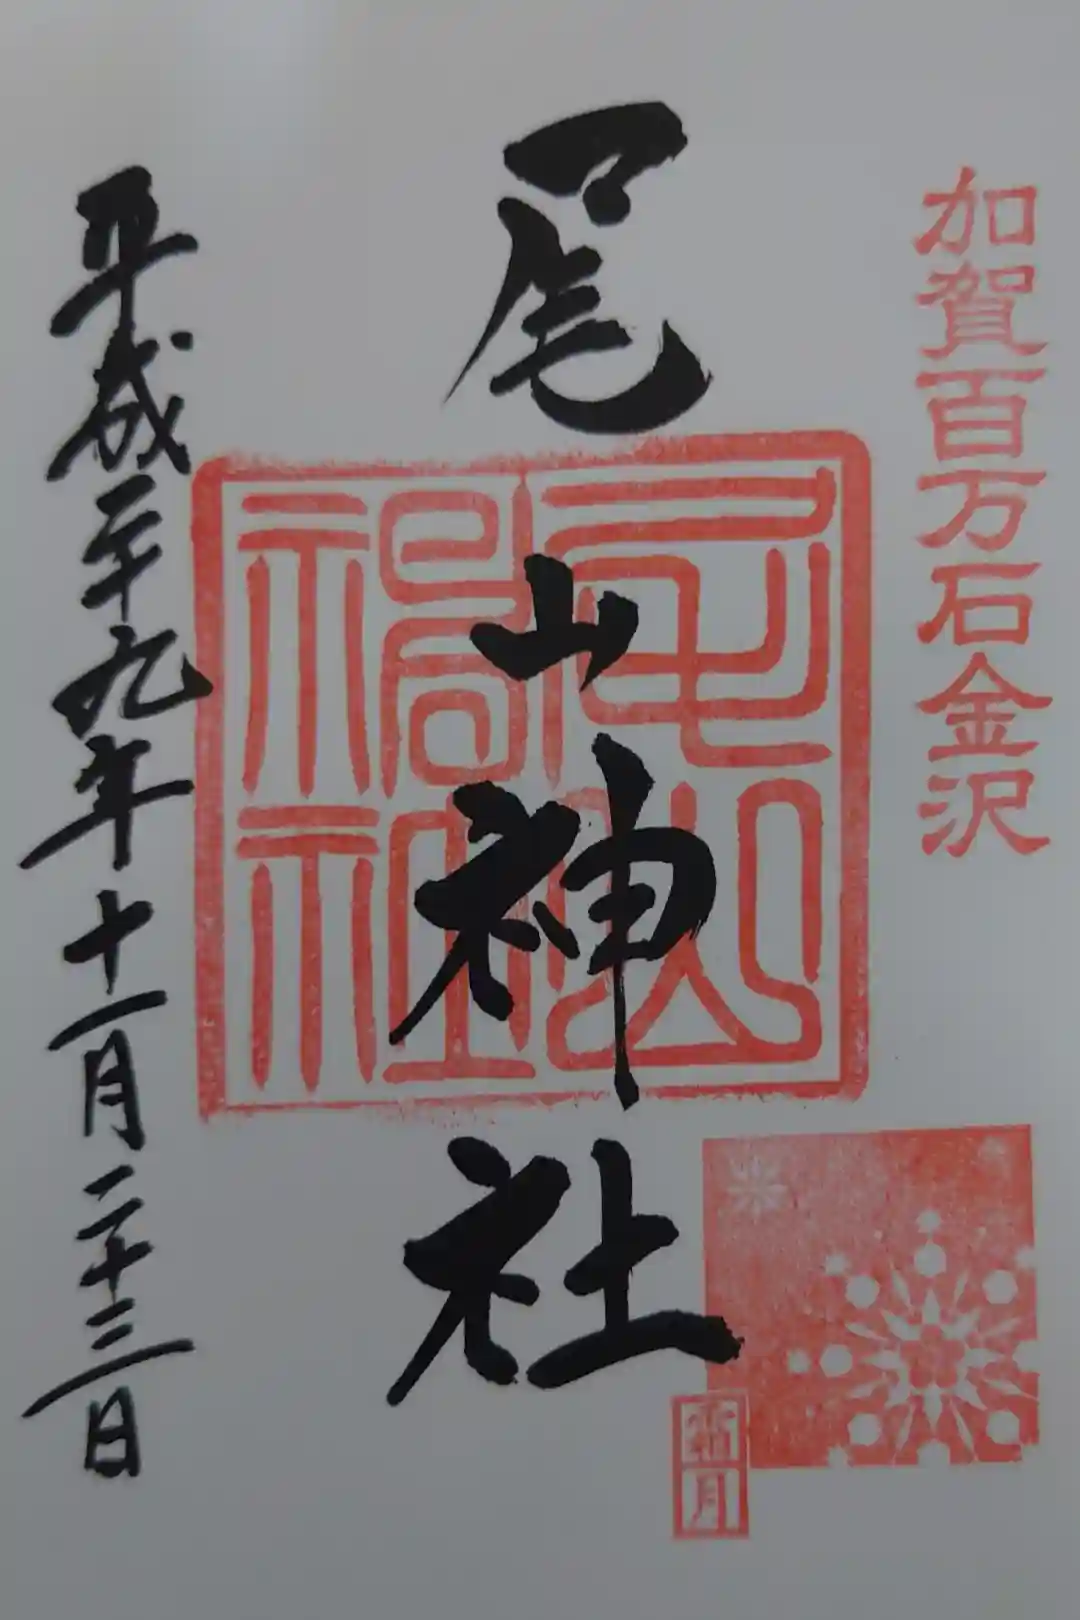 加賀百万石金沢
尾山神社
尾山
神社
霜月
平成二十九年十一月二十三日